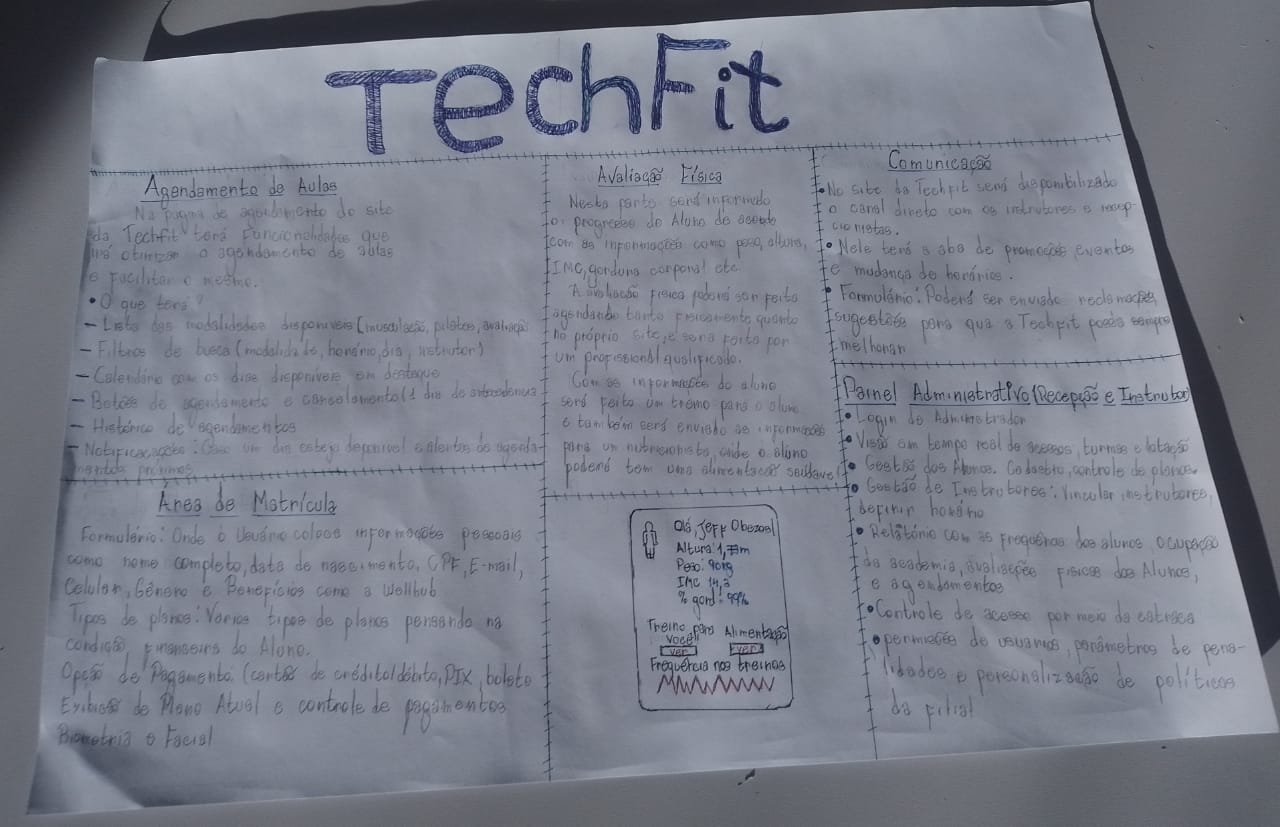 TechFit
Agendamento de Aulas
Na página de agendamento do site
da Techfit terá Funcionolidades que
irá otimizar o agendamento de aulas
e Facilitar o mesmo.
• O que terá?
- Lista das modalidades disponíveis (musculação, pilates, avaliação
- Filtros de busca (modalidade, horário, dia, instrutor)
- Calendário com os dias disponíveis em destaque
- Botões de agendamento e cancelamento (1 dia de antecedência
- Histórico de agendamentos
- Notificacações: Caso um dia esteja disponível e alertas de agenda-
próximos
Área de Matrícula
Formulário: Onde o Usuário coloca informações pessoais
como nome completo, data de nascimento, CPF, E-mail,
Celular, Gênero e Benefícios como a Wellhub
Tipos de planos: Vários tipos de planos pensando na
condição Financeira do Aluno.
Opção de Pagamento (cartão de crédito/débito, PIX, boleto
Exibição de Plano Atual e controle de pagamentos
Biometria e Facial
Avaliação Física
Nesta parte será informado
o progresso do Aluno de acordo
com as informações como peso, altura,
IMC, gordura corporal etc
A avaliação Física poderá ser feita
agendando tanto fisicamente quanto
no próprio site, e será feito por
um profissional qualificado.
Com as informações do aluno
será feito um tremo para o aluno
e também será enviado as informações
para um nutricionista, onde o aluno
poderá tem uma alimentação saudavel
Olá, Jeff Obezoel
Altura: 1,
Peso: 90kg
IMC
% gord: 99%
Treino para Alimentação
você!
ver ver
Frequência nos treinos
Comunicação
• No site da Techfit será disponibilizado
o canal direto com os instrutores e recep-
cionistas.
• Nele terá a aba de promoções, eventos
e mudança de horários.
• Formulário: Poderá ser enviado reclamações,
sugestões para que a Techfit possa sempre
melhorar
Painel Administrativo (Recepção e Instrutor)
• Login do Administrador
• Visão em tempo real de acessos, turmas e lotação
• Gestão dos Alunos: Cadastro, controle de planos
• Gestão de Instrutores: Vincular instrutores,
definir horário
• Relatório com as frequências dos alunos, ocupação
da academia, avaliações Físicas dos Alunos,
e agendamentos
• Controle de acesso por meio da catraca
• permissões de usuários, parâmetros de pena-
lidades e personalização de políticas
da filial